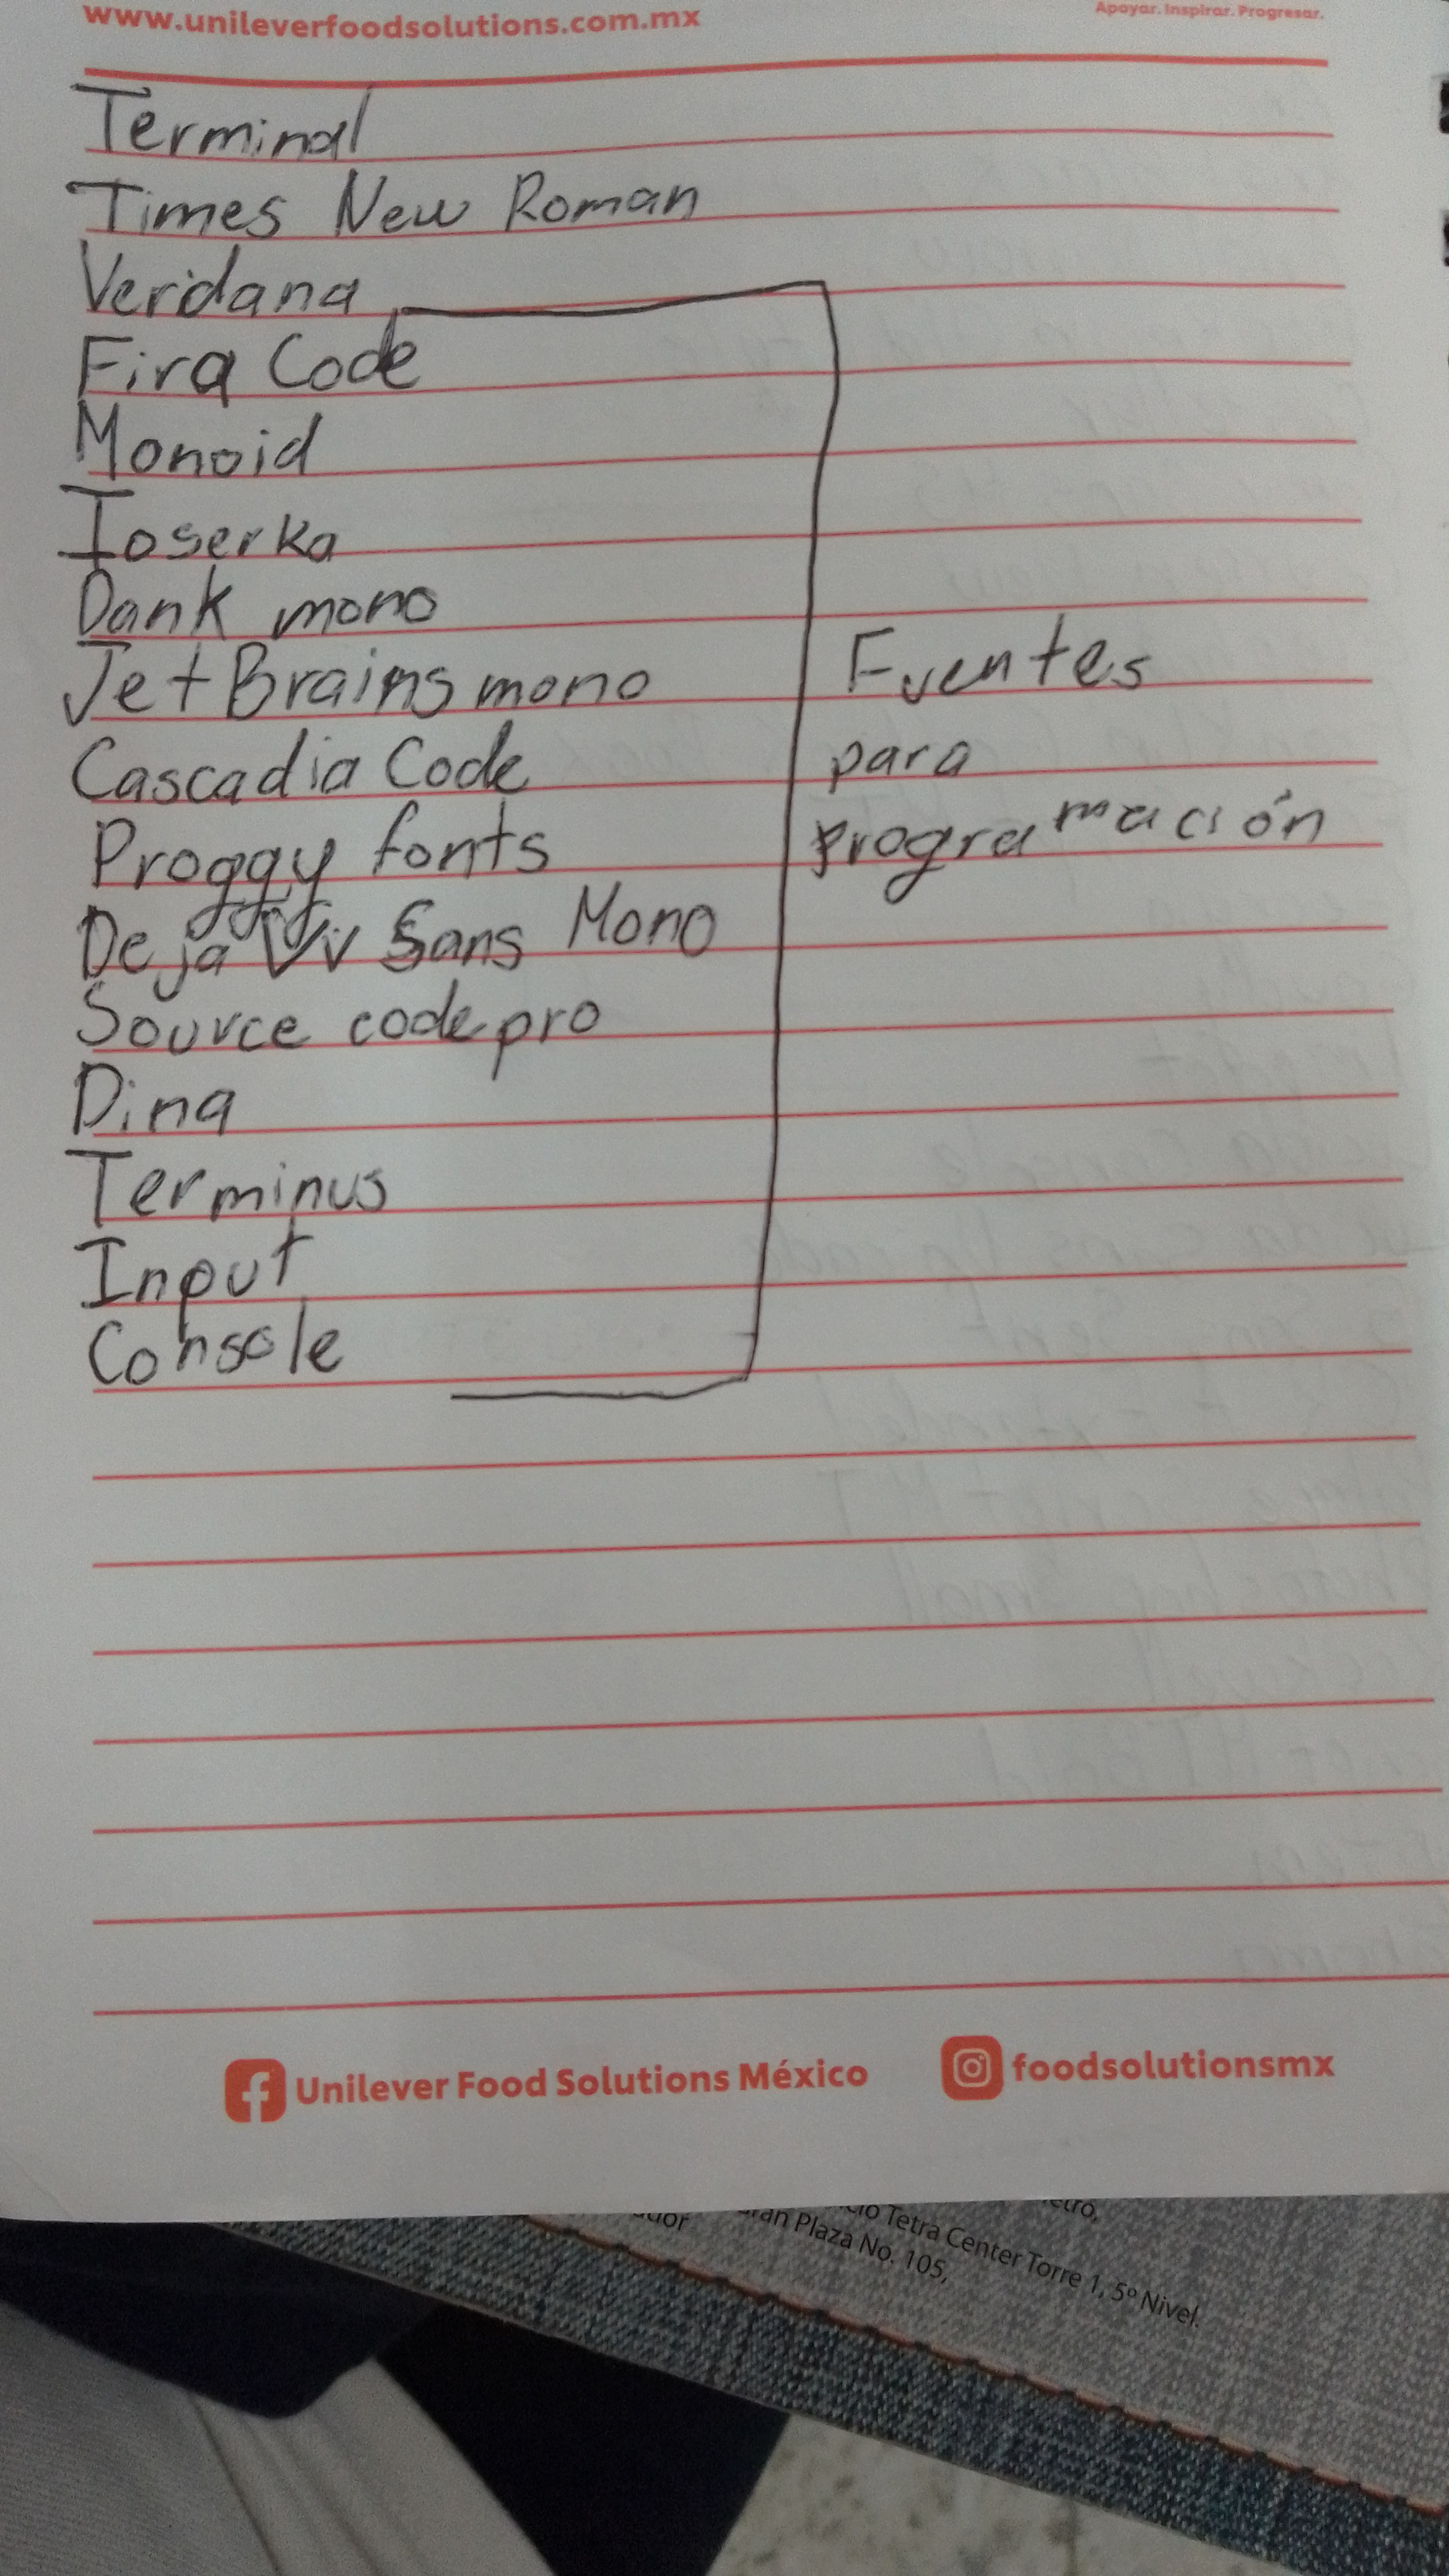 www.unileverfoodsolutions.com.mx
Apoyar. Inspirar. Progresar.
Terminal
Times New Roman
Verdana
Fira Code
Monoid
Ioserka
Dank mono
JetBrains mono
Cascadia Code
Proggy fonts
Deja Vv Sans Mono
Source code pro
Dina
Terminus
Input
Console
Fuentes
para
programación
Unilever Food Solutions México
foodsolutionsmx
Tetra Center Torre 1, 5º Nivel.
Plaza No. 105,